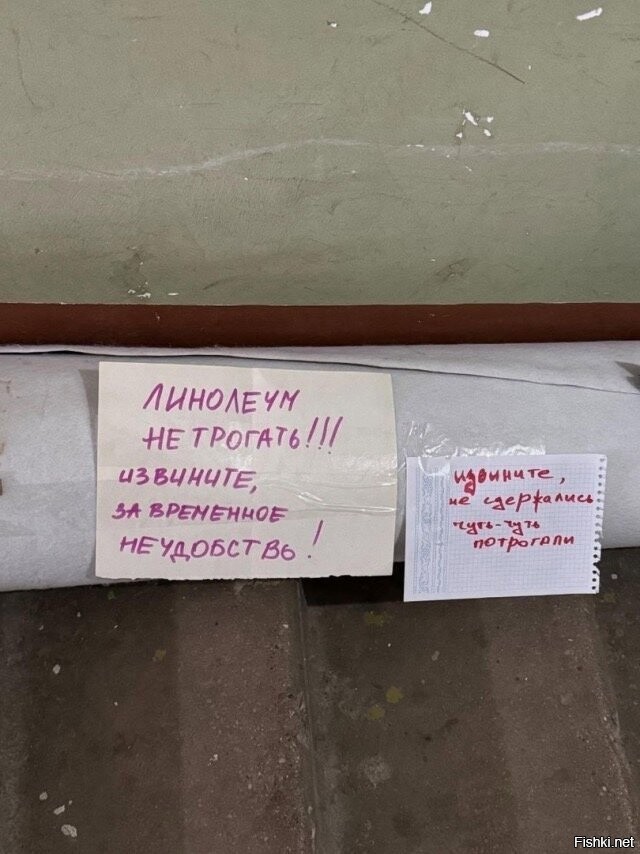 ЛИНОЛЕУМ
НЕ ТРОГАТЬ!!!
ИЗВИНИТЕ,
ЗА ВРЕМЕННОЕ
НЕУДОБСТВЬ!
извините,
не сдержались
чуть-чуть
потрогали
Fishki.net